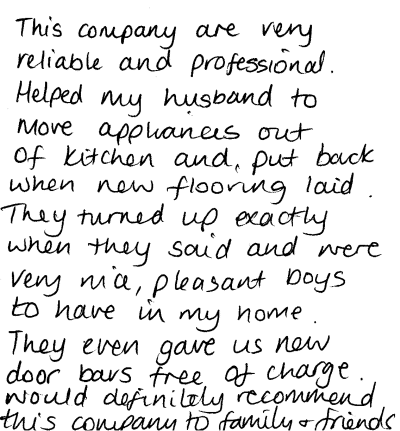 This company are very
reliable and professional.
Helped my husband to
move appliances out
of kitchen and, put back
when new flooring laid.
They turned up exactly
when they said and were
very nice, pleasant boys
to have in my home.
They even gave us new
door bars free of charge.
would definitely recommend
this company to family & friends